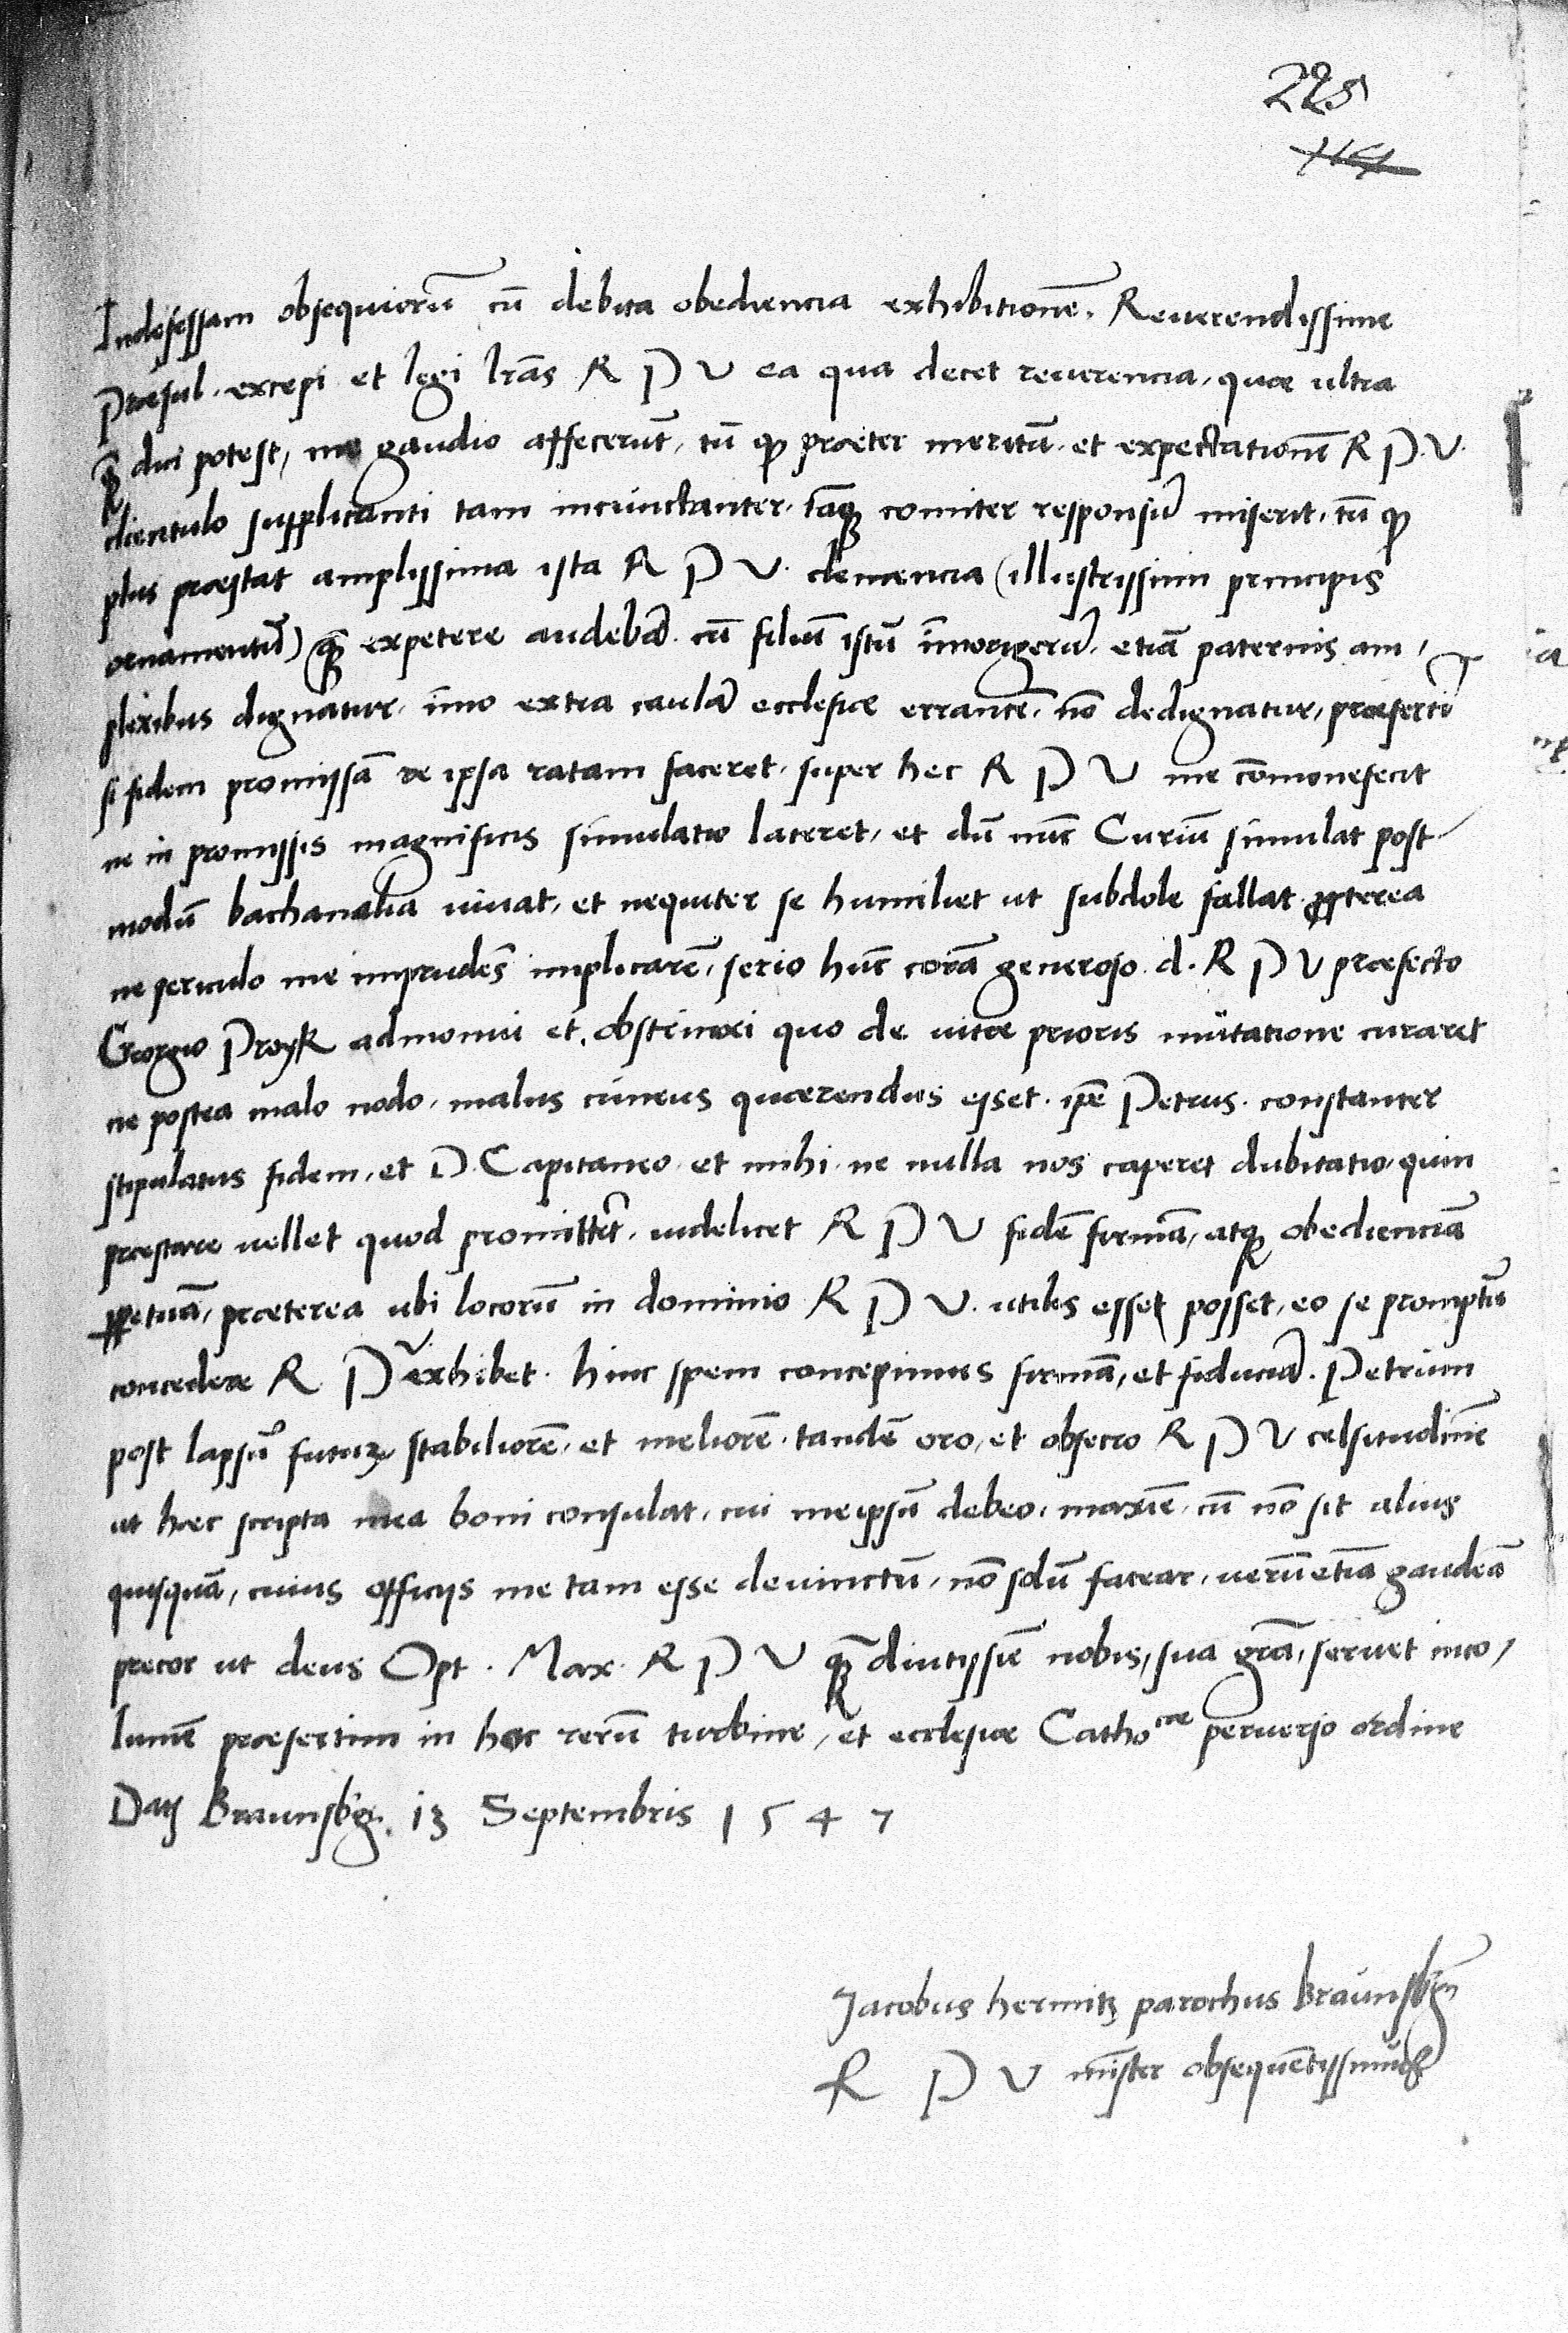 225
Indefessam obsequiorū cū debita obediencia exhibitionē. Reuerendissime
Præsul. excepi et legi lrās R P V ea qua decet reuerencia, quæ ultra
q̄ dici potest, me gaudio affecerūt, tū qꝫ præter meritū. et expectationē R P. V.
clientulo supplicanti tam incunctanter, tāqꝫ comiter responsū miserit, tū qꝫ
plus præstat amplissima ista R P V. clemencia (illustrissimi principis
ornamentū) q̄ expetere audebā. cū filiū istū īmorigerū. etiā paternis am,
plexibus dignatur. īmo extra caulā ecclesiæ errantē. nō dedignatur, præsertī
si fidem promissā re ipsa ratam faceret. super hec R P V me cōmonefecit
ne in promissis magnificis simulatio lateret, et dū nūc Curiū simulat post-
modū bachanalia viuat, et nequiter se humiliet ut subdole fallat. ꝓpterea
ne periculo me imprudēs implicarē, serio hūc corā generoso. d. R P V præfecto
Georgio Proyk admonui et. obstrinxi quo de vitæ prioris mutatione curaret
ne postea malo nodo. malus cuneus quærendus esset. ipē Petrus. constanter
stipulatus fidem. et D. Capitaneo. et mihi. ne nulla nos caperet dubitatio, quin
præstare vellet quod promittērt. videlicet R P V fidē firmā, atqꝫ obedienciā
ꝑpetuā, præterea ubi locorū in dominio R P V. utilis esse posset, eo se promptū
concedere R. P exhibet. hinc spem concepimus firmā, et fiduciā. Petrum
post lapsū futurꝫ stabiliorē. et meliorē. tandē oro, et obsecro R P V celsitudinē
ut hæc scripta mea boni consulat, cui meipsū debeo, maxīe. cū nō sit alius
quisquā, cuius officijs me tam esse deuinctū, nō solū fatear, verū etiā gaudeā
precor ut deus Opt. Max. R P V q̄ diutissīe nobis, sua grā, seruet inco,
lumē præsertim in hoc rerū turbine, et ecclesiæ Cathocæ peruerso ordine
Datꝫ Braunsbg. 13 Septembris 1547
Jacobus hermitz parochus Braunsbgn
R P V mīster obsequētissimus